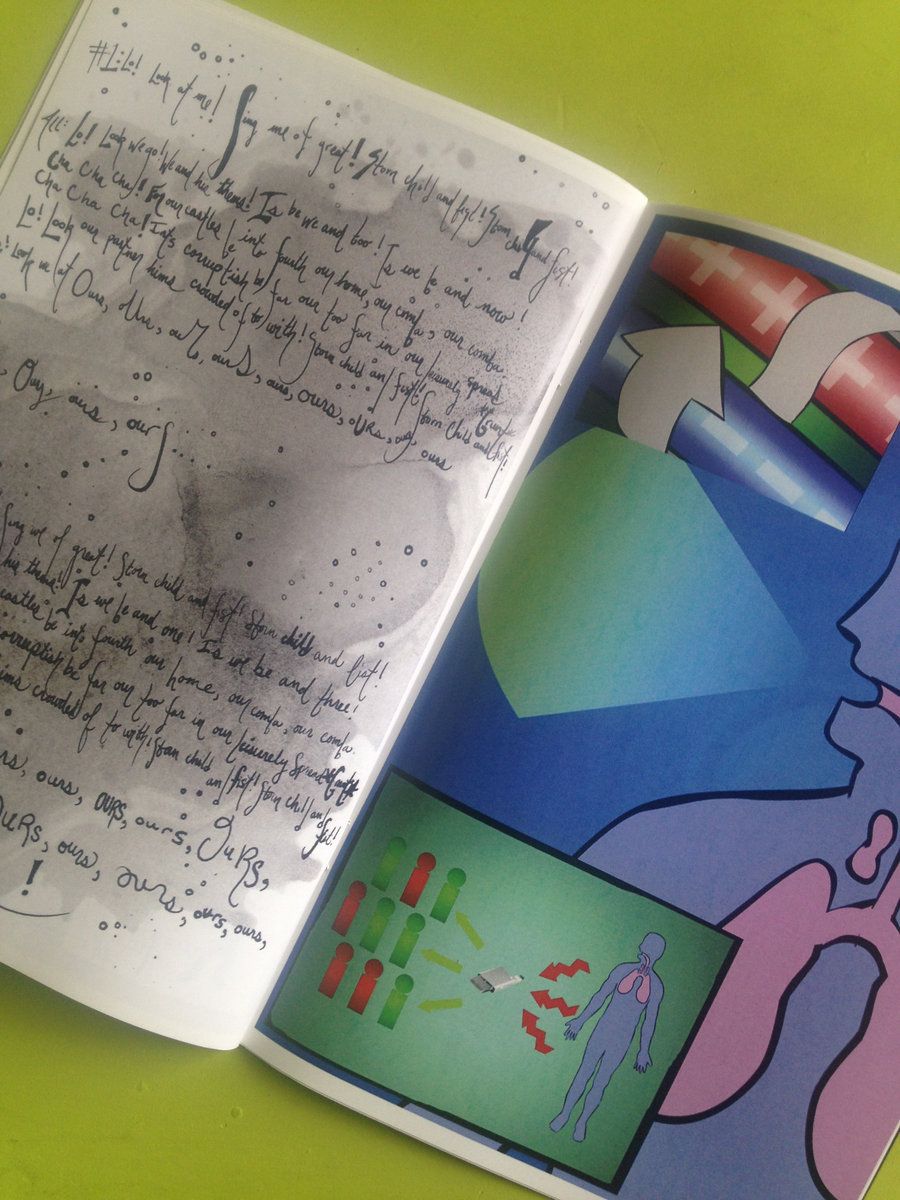 #1: Lo! Look at me! Sing me of great! Storn child and fist! Storn child and fist!
All: Lo! Look we go! We and hie thems! Is be we and too! Is we be and now!
Cha Cha Cha! For our castles be into fourth our home, our comfa, our comfa
Cha Cha Cha! Ints corruptish be far our too far in our leisurely spread
Lo! Look our partner hims crowded of to with! Storn child and fist! Storn child and fist!
Look we at Ours, ours, ours, ours, ours, ours, ours
Ours, ours, ours
Sing we of great! Storn child and fist! Storn child and fist!
hie thems! Is we be and one! Is we be and three!
castles be into fourth our home, our comfa, our comfa.
corruptish be far our too far in our leisurely spread
hims crowded of to with! Storn child and fist! Storn child and fist!
ours, ours, ours, ours, Ours,
Ours, ours, ours, ours, ours,
!